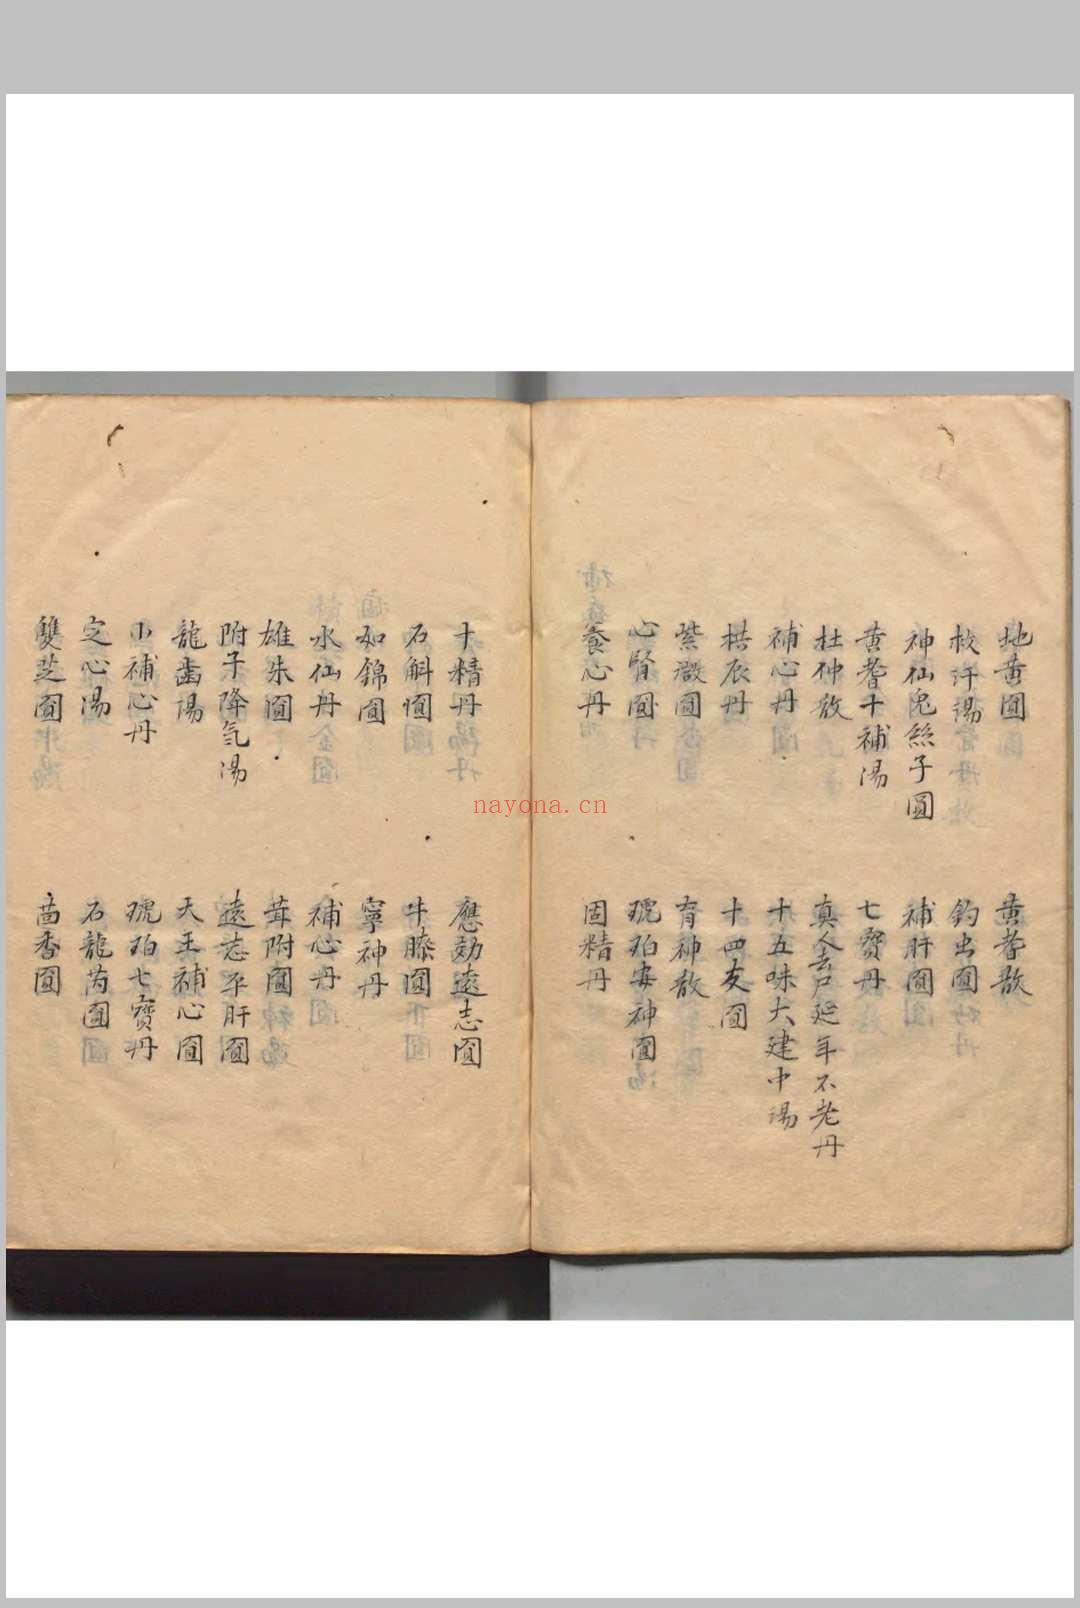 地黄圓
黄耆散
桉汗湯
釣虫圓
神仙兔絲子圓
補肝圓
黄耆十補湯
七寶丹
杜仲散
真人去尸延年不老丹
補心丹
十五味大建中湯
拱辰丹
十四友圓
紫薇圓
有神散
心腎圓
琥珀安神圓
養心丹
固精丹
十精丹
應効遠志圓
石斛圓
牛膝圓
如錦圓
寧神丹
水仙丹
補心丹
雄朱圓
茸附圓
附子降氣湯
遠志平肝圓
龍齒湯
天王補心圓
小補心丹
琥珀七寶丹
定心湯
石龍芮圓
雙芝圓
茴香圓
nayona.cn